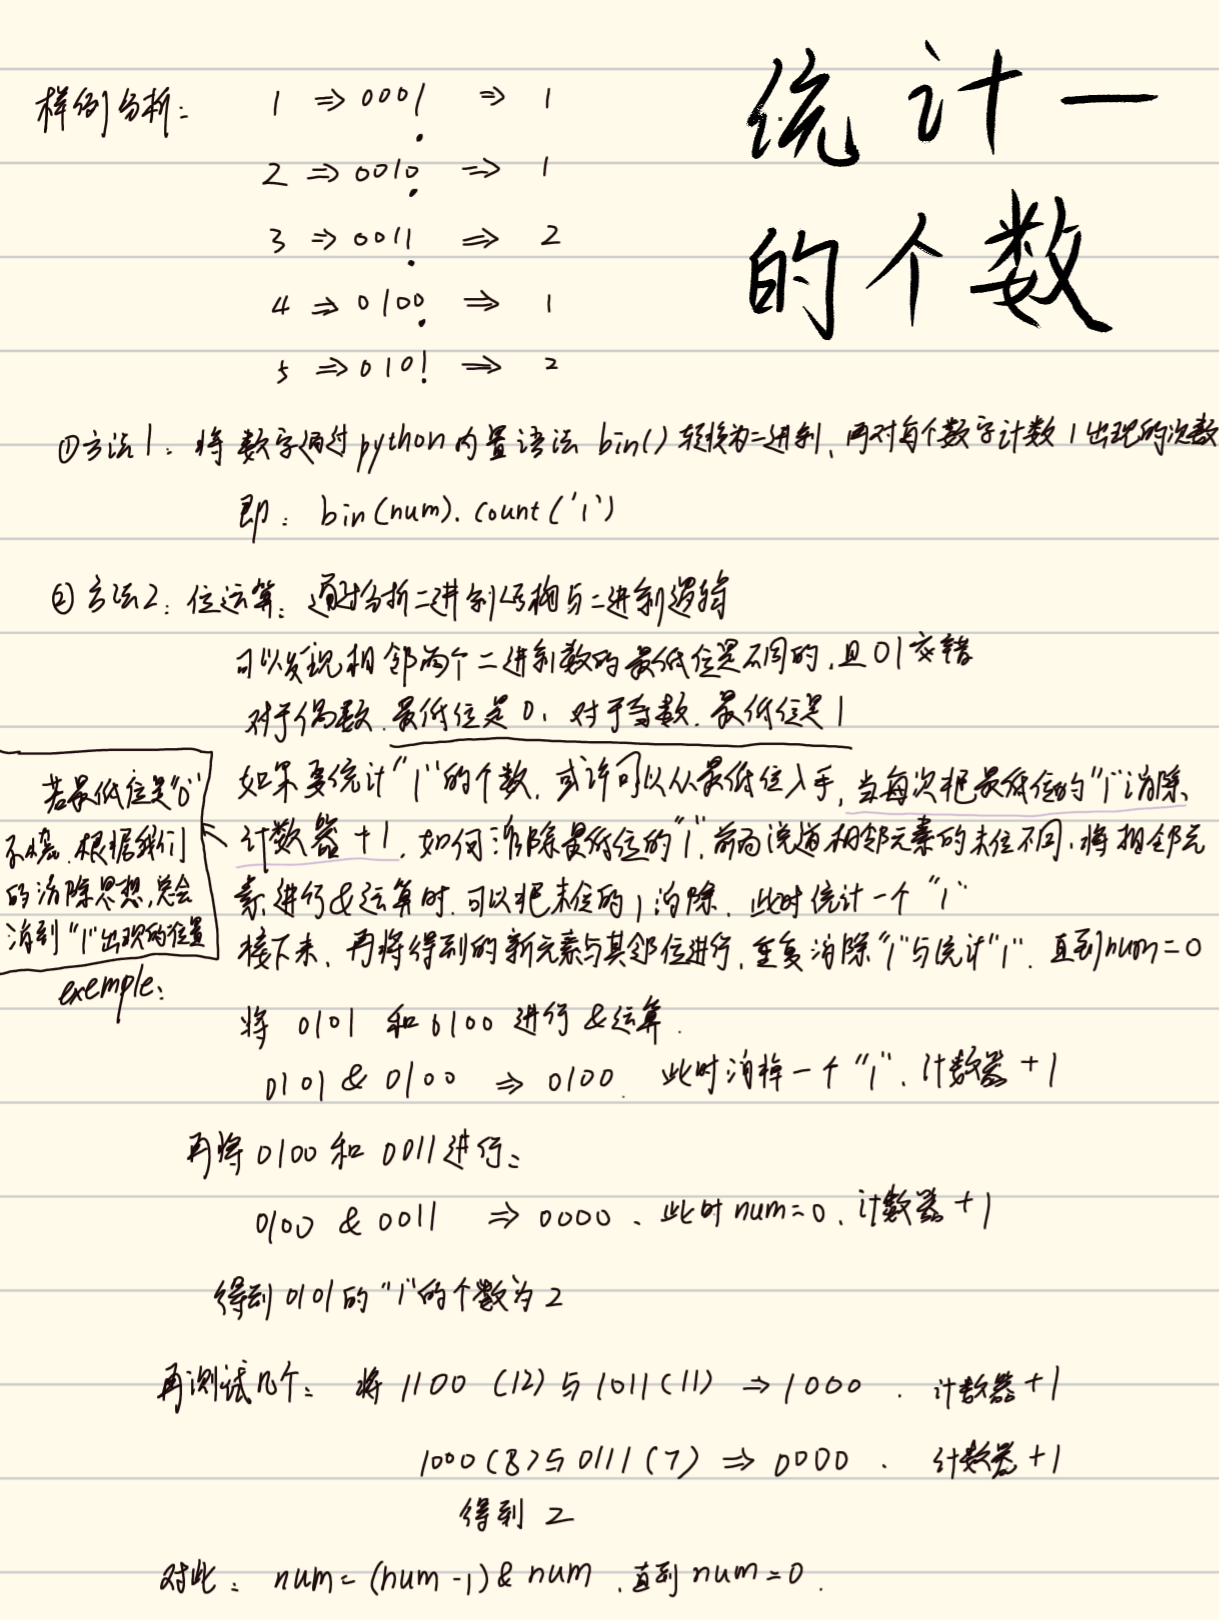 统计一
的个数
样例分析:
1 ⇒ 0001 ⇒ 1
2 ⇒ 0010 ⇒ 1
3 ⇒ 0011 ⇒ 2
4 ⇒ 0100 ⇒ 1
5 ⇒ 0101 ⇒ 2
①方法1: 将数字通过python内置语法 bin() 转换为二进制, 再对每个数字计数1出现的次数
即: bin(num).count('1')
②方法2: 位运算: 通过分析二进制结构与二进制逻辑
可以发现相邻两个二进制数的最低位是不同的,且01交错
对于偶数,最低位是0,对于奇数,最低位是1
如果要统计"1"的个数,或许可以从最低位入手,当每次把最低位的"1"消除
计数器+1,如何消除最低位的"1",前面说道相邻元素的末位不同,将相邻元
素进行&运算时,可以把末位的1消除,此时统计一个"1"
接下来,再将得到的新元素与其邻位进行,重复消除"1"与统计"1",直到num=0
若最低位是"0"
不慌,根据我们
的消除思想,总会
消到"1"出现的位置
exemple:
将 0101 和 0100 进行&运算.
0101 & 0100 ⇒ 0100. 此时消掉一个"1", 计数器+1
再将0100和0011进行:
0100 & 0011 ⇒ 0000、此时num=0,计数器+1
得到0101的"1"的个数为2
再测试几个: 将 1100 (12) 与 1011 (11) ⇒ 1000 . 计数器+1
1000 (8) 与 0111 (7) ⇒ 0000 . 计数器+1
得到 2
对此: num = (num-1) & num ,直到num=0.